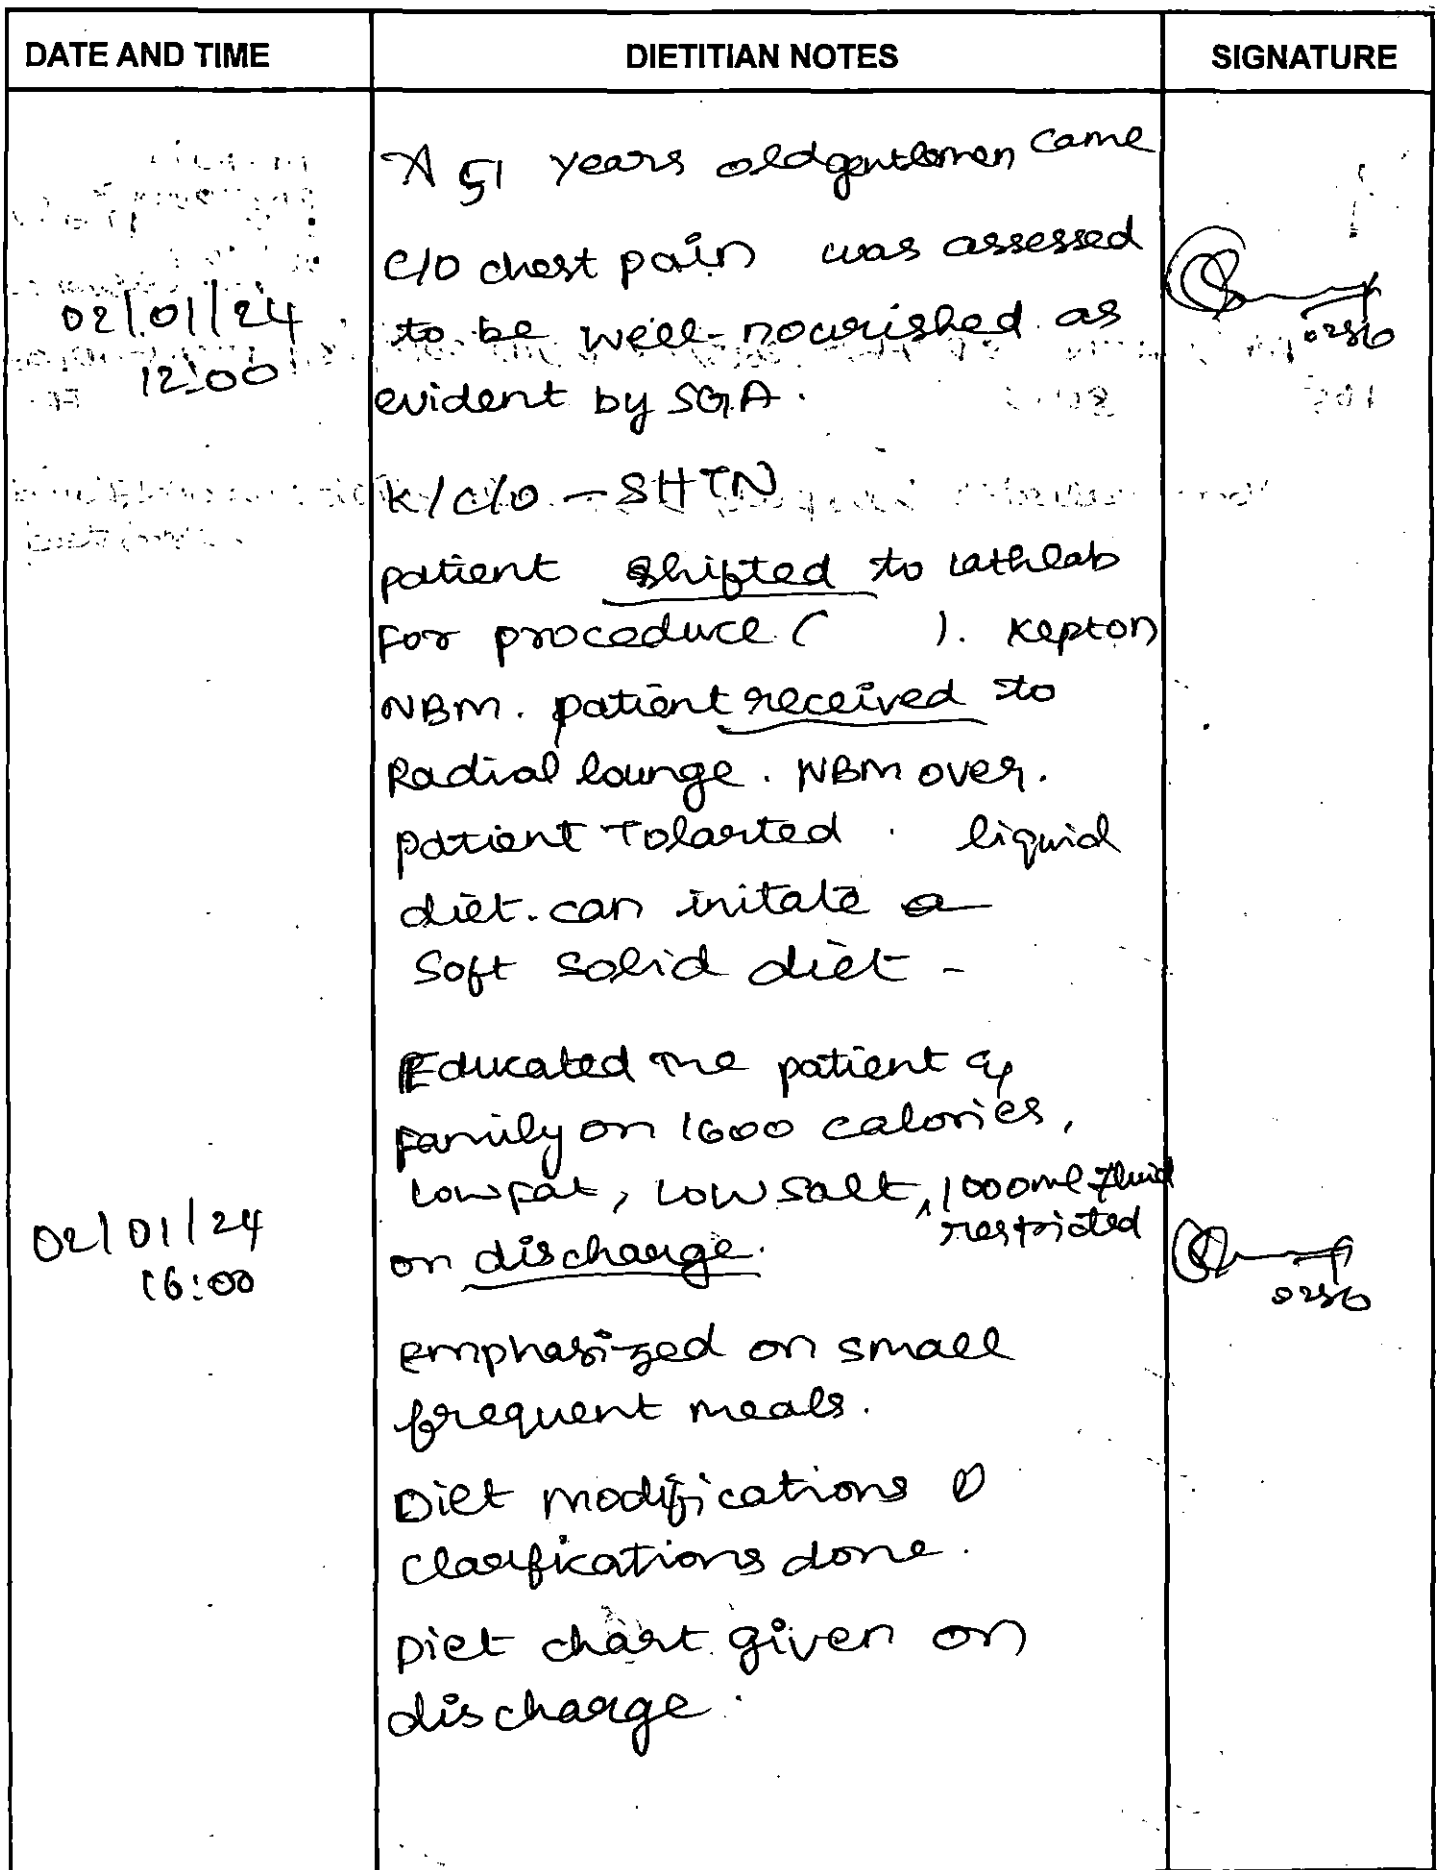 DATE AND TIME DIETITIAN NOTES SIGNATURE
A 51 years old gentlemen came
c/o chest pain was assessed
02/01/24 to be well-nourished as 0236
12:00 evident by SGA.
K/c/o - SHTN
patient shifted to cathlab
For procedure ( ). Kept on
NBM. patient received to
Radial lounge. NBM over.
patient Tolarted liquid
diet. can initate a
Soft solid diet -
Educated the patient &
family on 1600 calories,
02/01/24 Low fat, Low salt, 1000ml fluid restricted
16:00 on discharge. 0236
emphasized on small
frequent meals.
Diet modifications
clarfications done.
Diet chart given on
discharge.